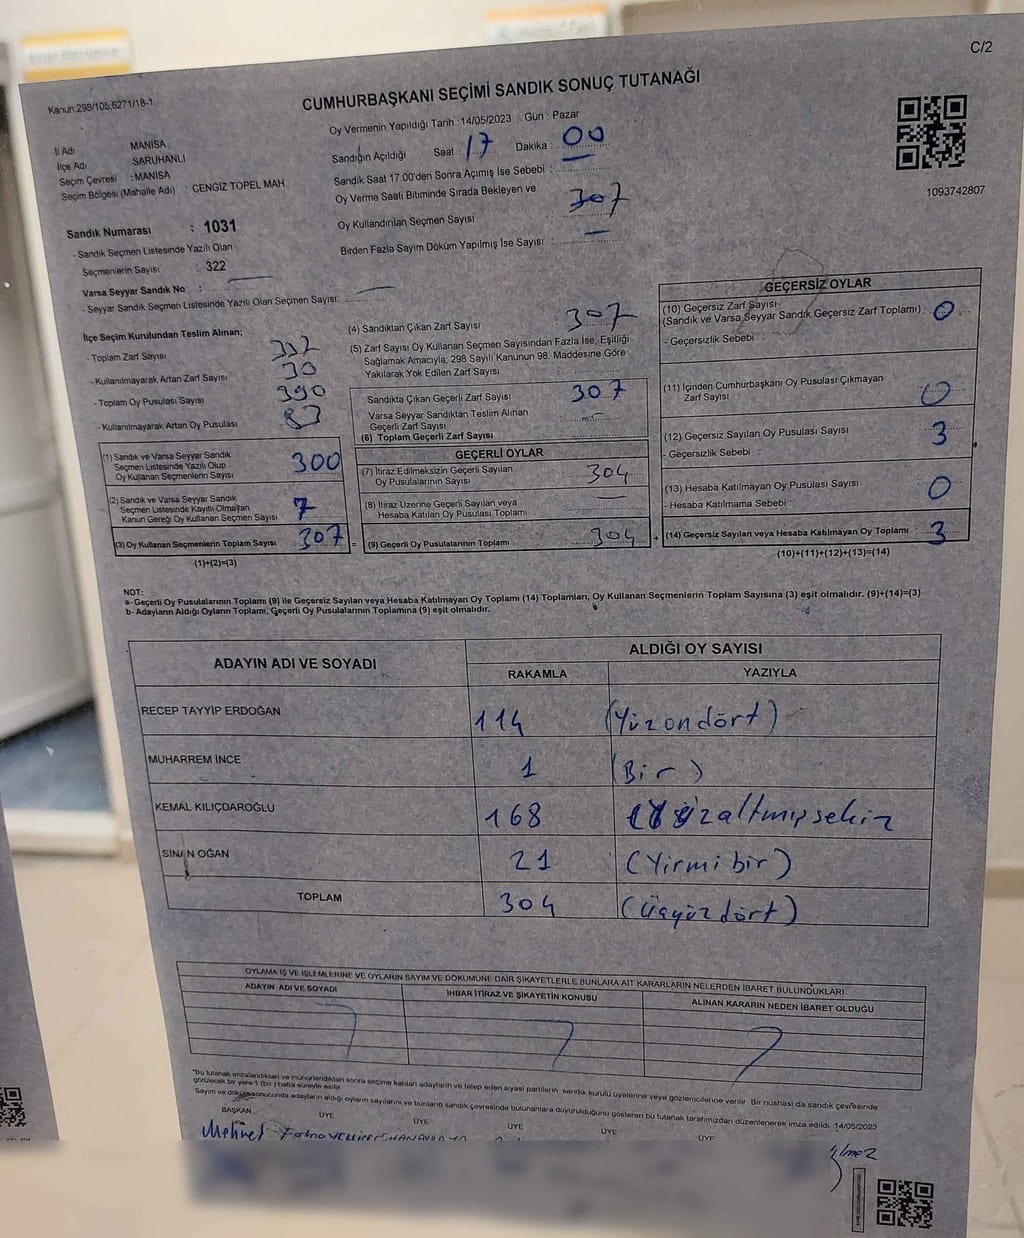 C/2
Kanun 298/105;6271/18-1
CUMHURBAŞKANI SEÇİMİ SANDIK SONUÇ TUTANAĞI
Oy Vermenin Yapıldığı Tarih : 14/05/2023 Gün : Pazar
İl Adı MANİSA
İlçe Adı SARUHANLI
Seçim Çevresi : MANİSA
Seçim Bölgesi (Mahalle Adı) : CENGİZ TOPEL MAH
Sandığın Açıldığı Saat : 17 Dakika : 00
Sandık Saat 17.00'den Sonra Açımış İse Sebebi :
Oy Verme Saati Bitiminde Sırada Bekleyen ve
Oy Kullandırılan Seçmen Sayısı 307
Birden Fazla Sayım Döküm Yapılmış İse Sayısı :
1093742807
Sandık Numarası : 1031
- Sandık Seçmen Listesinde Yazılı Olan
Seçmenlerin Sayısı : 322
Varsa Seyyar Sandık No :
- Seyyar Sandık Seçmen Listesinde Yazılı Olan Seçmen Sayısı:
İlçe Seçim Kurulundan Teslim Alınan;
- Toplam Zarf Sayısı
- Kullanılmayarak Artan Zarf Sayısı 30
- Toplam Oy Pusulası Sayısı 390
- Kullanılmayarak Artan Oy Pusulası 83
(1) Sandık ve Varsa Seyyar Sandık
Seçmen Listesinde Yazılı Olup
Oy Kullanan Seçmenlerin Sayısı 300
(2) Sandık ve Varsa Seyyar Sandık
Seçmen Listesinde Kayıtlı Olmayan
Kanun Gereği Oy Kullanan Seçmen Sayısı 7
(3) Oy Kullanan Seçmenlerin Toplam Sayısı 307 =
(1)+(2)=(3)
(4) Sandıktan Çıkan Zarf Sayısı 307
(5) Zarf Sayısı Oy Kullanan Seçmen Sayısından Fazla İse, Eşitliği
Sağlamak Amacıyla, 298 Sayılı Kanunun 98. Maddesine Göre
Yakılarak Yok Edilen Zarf Sayısı
Sandıkta Çıkan Geçerli Zarf Sayısı 307
Varsa Seyyar Sandıktan Teslim Alınan
Geçerli Zarf Sayısı
(6) Toplam Geçerli Zarf Sayısı
GEÇERLİ OYLAR
(7) İtiraz Edilmeksizin Geçerli Sayılan
Oy Pusulalarının Sayısı 304
(8) İtiraz Üzerine Geçerli Sayılan veya
Hesaba Katılan Oy Pusulası Toplamı
(9) Geçerli Oy Pusulalarının Toplamı 304 +
GEÇERSİZ OYLAR
(10) Geçersiz Zarf Sayısı
(Sandık ve Varsa Seyyar Sandık Geçersiz Zarf Toplamı) : 0
- Geçersizlik Sebebi :
(11) İçinden Cumhurbaşkanı Oy Pusulası Çıkmayan
Zarf Sayısı 0
(12) Geçersiz Sayılan Oy Pusulası Sayısı 3
- Geçersizlik Sebebi :
(13) Hesaba Katılmayan Oy Pusulası Sayısı 0
- Hesaba Katılmama Sebebi :
(14) Geçersiz Sayılan veya Hesaba Katılmayan Oy Toplamı : 3
(10)+(11)+(12)+(13)=(14)
NOT:
a- Geçerli Oy Pusulalarının Toplamı (9) ile Geçersiz Sayılan veya Hesaba Katılmayan Oy Toplamı (14) Toplamları, Oy Kullanan Seçmenlerin Toplam Sayısına (3) eşit olmalıdır. (9)+(14)=(3)
b- Adayların Aldığı Oyların Toplamı, Geçerli Oy Pusulalarının Toplamına (9) eşit olmalıdır.
ADAYIN ADI VE SOYADI ALDIĞI OY SAYISI
RAKAMLA YAZIYLA
RECEP TAYYİP ERDOĞAN 114 (Yüzondört)
MUHARREM İNCE 1 (Bir)
KEMAL KILIÇDAROĞLU 168 (Yüzaltmışsekiz
SİNAN OĞAN 21 (Yirmibir)
TOPLAM 304 (üçyüzdört)
OYLAMA İŞ VE İŞLEMLERİNE VE OYLARIN SAYIM VE DÖKÜMÜNE DAİR ŞİKAYETLERLE BUNLARA AİT KARARLARIN NELERDEN İBARET BULUNDUKLARI
ADAYIN ADI VE SOYADI İHBAR İTİRAZ VE ŞİKAYETİN KONUSU ALINAN KARARIN NEDEN İBARET OLDUĞU
"Bu tutanak imzalandıktan ve mühürlendikten sonra seçime katılan adayların ve talep eden siyasi partilerin sandık kurulu üyelerine veya gözlemcilerine verilir. Bir nüshası da sandık çevresinde
görülecek bir yere 1 (bir) hafta süreyle asılır.
Sayım ve döküm sonucunda adayların aldığı oyların sayılarını ve bunların sandık çevresinde bulunanlara duyurulduğunu gösteren bu tutanak tarafımızdan düzenlenerek imza edildi. 14/05/2023
BAŞKAN ÜYE ÜYE ÜYE ÜYE
Mehmet